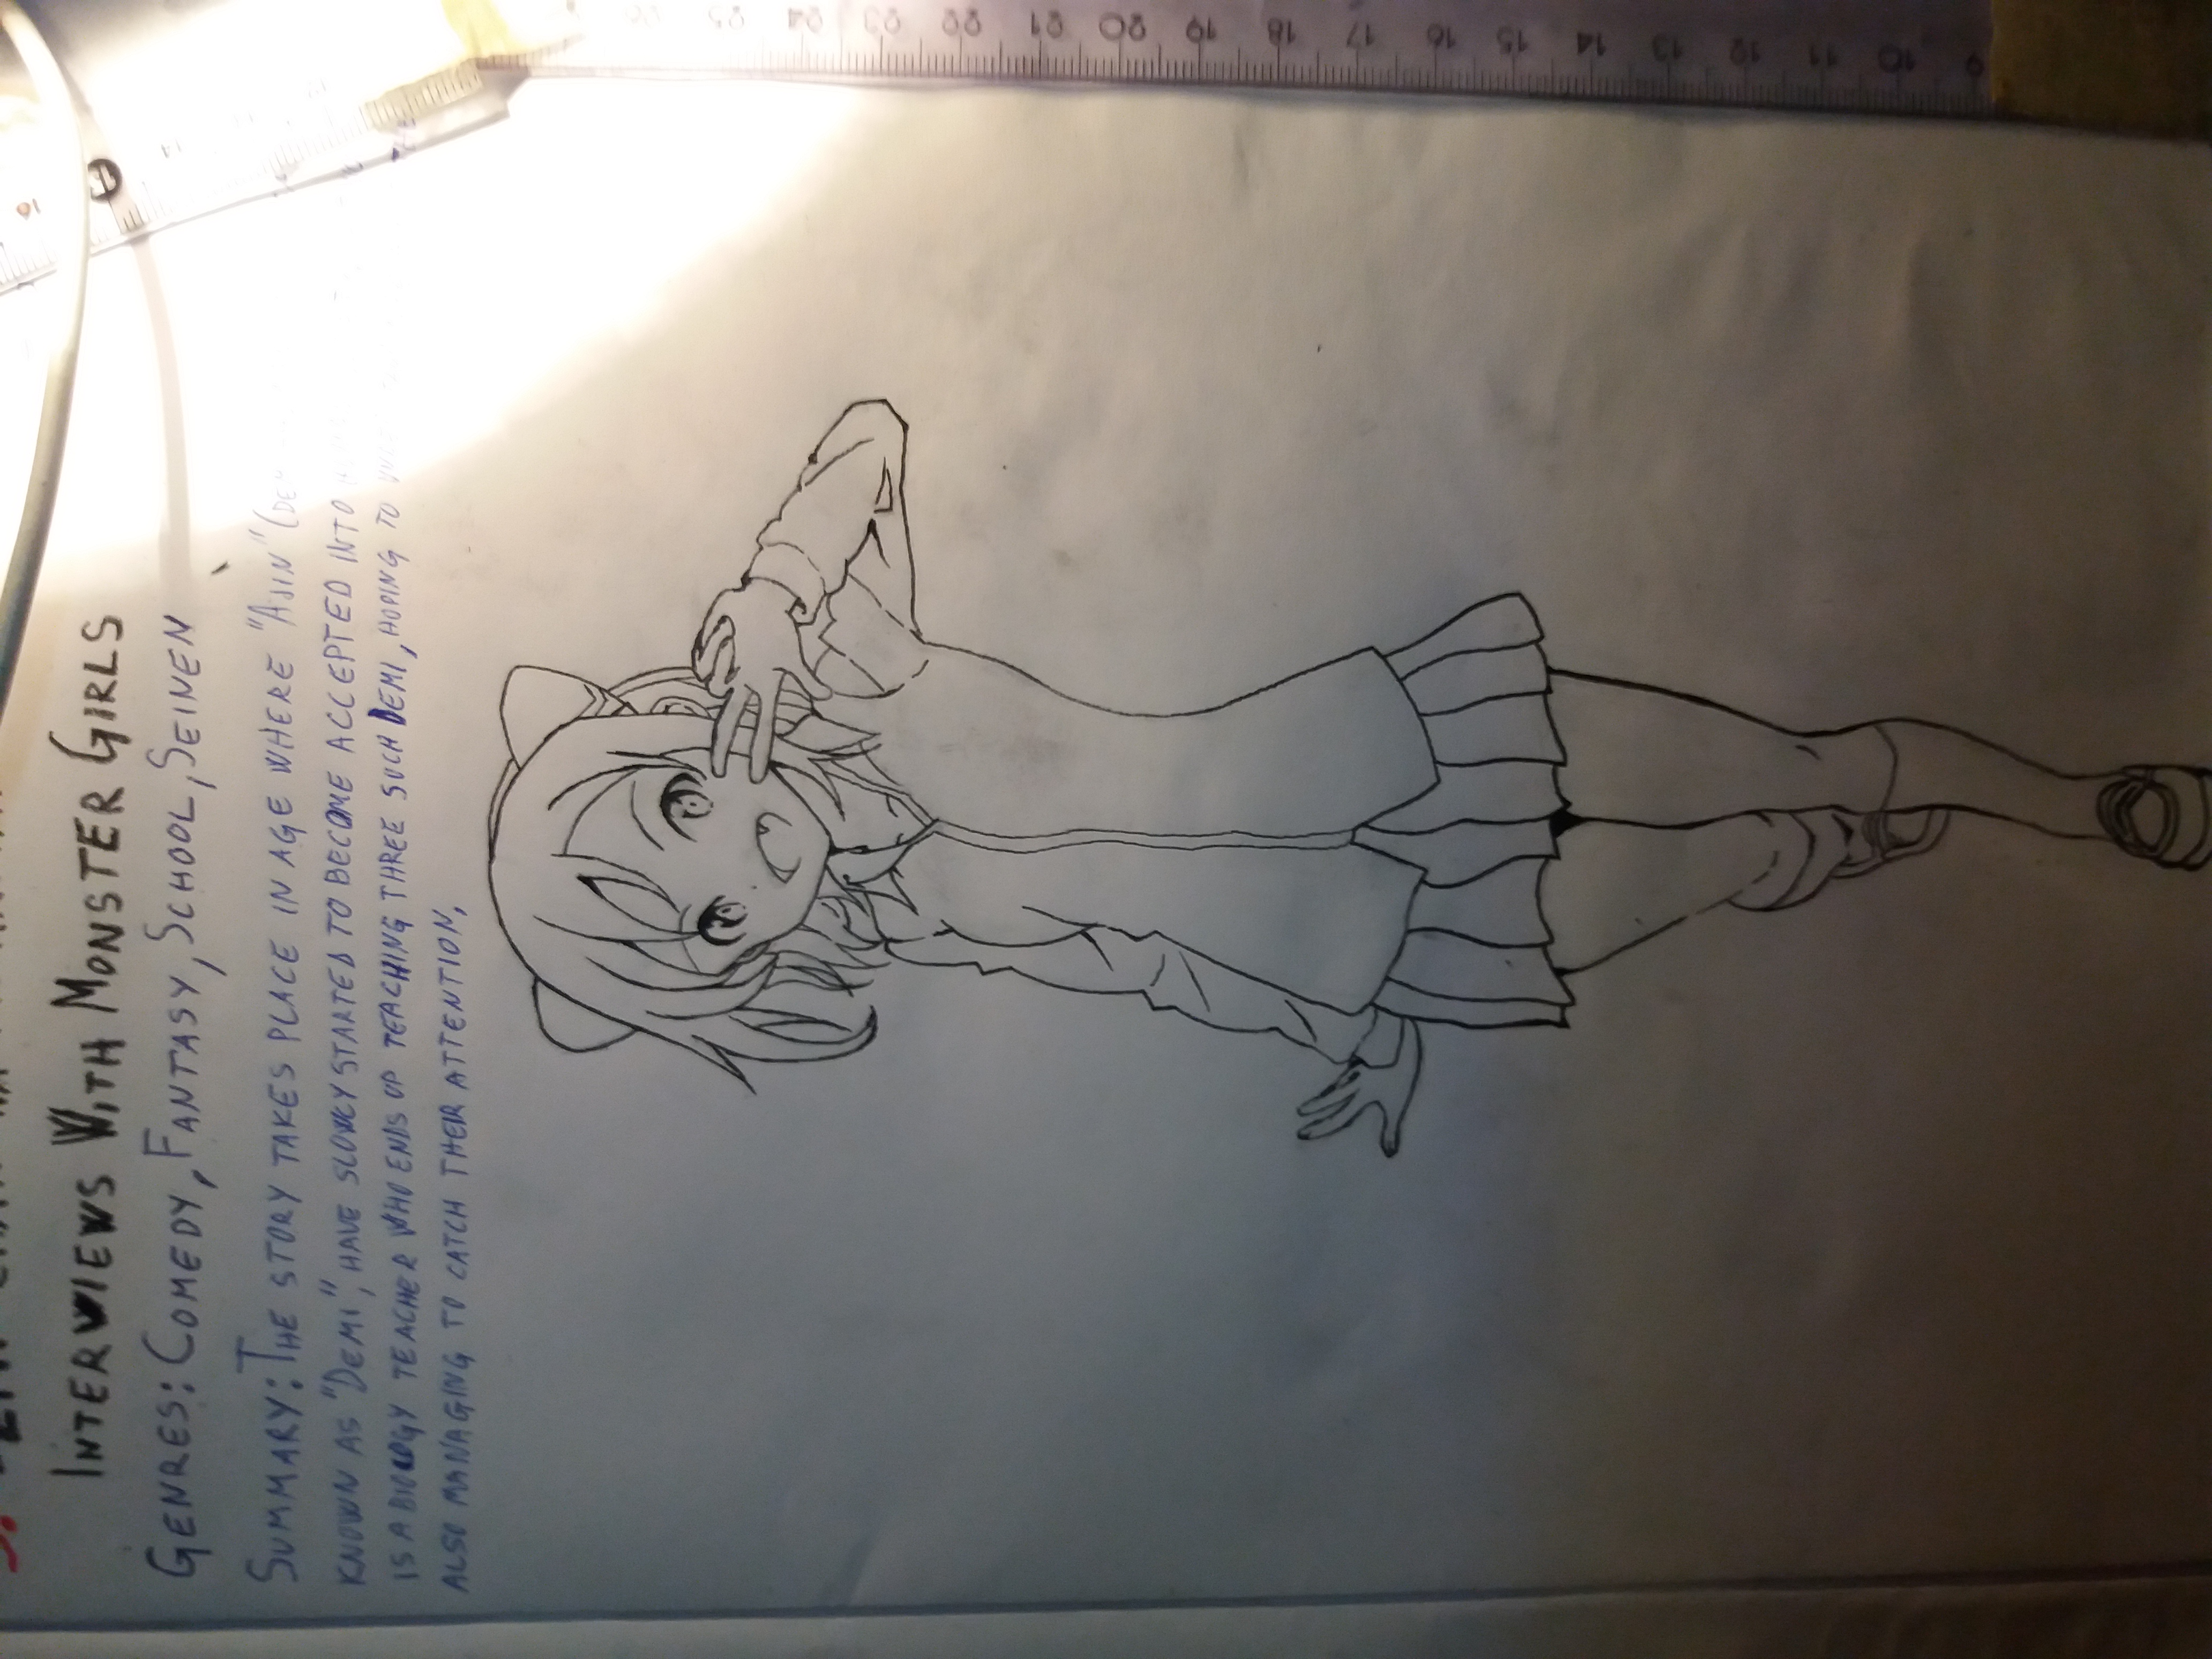 INTERVIEWS WITH MONSTER GIRLS
GENRES: COMEDY, FANTASY, SCHOOL, SEINEN
SUMMARY: THE STORY TAKES PLACE IN AGE WHERE "AJIN"
KNOWN AS "DEMI", HAVE SLOWLY STARTED TO BECOME ACCEPTED INTO
IS A BIOLOGY TEACHER WHO ENDS UP TEACHING THREE SUCH DEMI, HOPING TO
ALSO MANAGING TO CATCH THEIR ATTENTION,
25
24
23
22
21
20
19
18
17
16
15
14
13
12
11
10
9